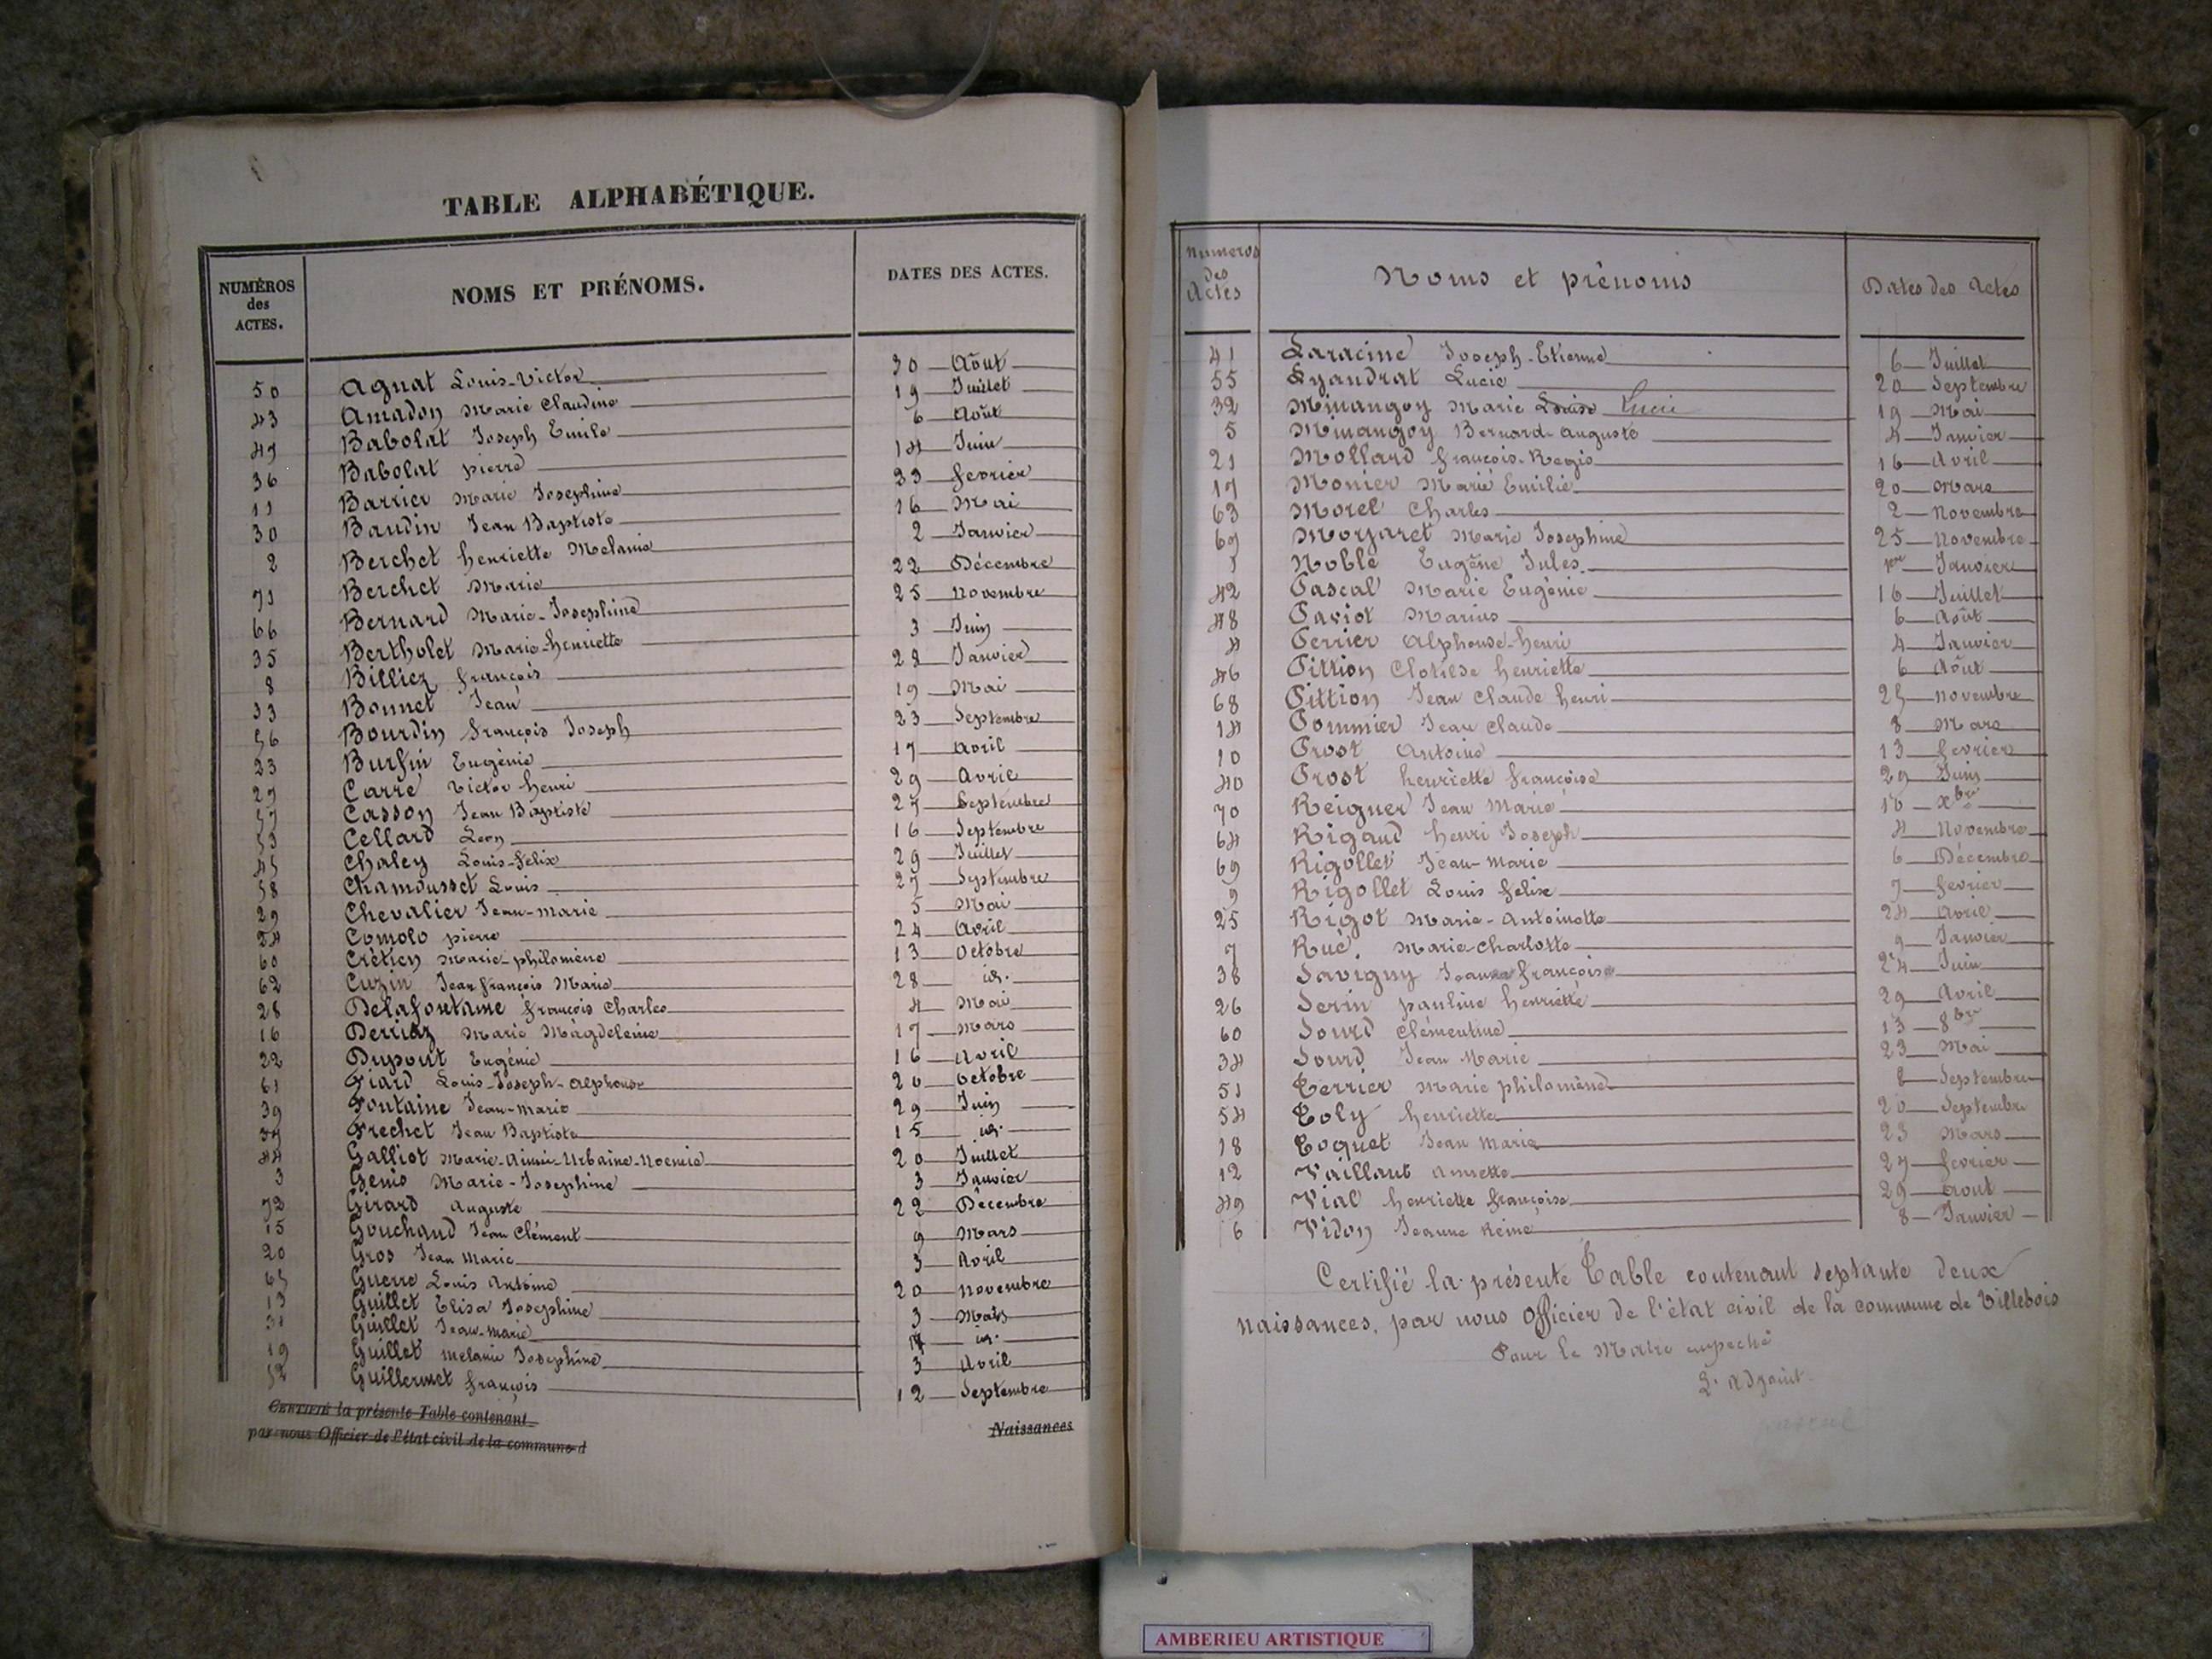 TABLE ALPHABÉTIQUE.
NUMÉROS des ACTES. NOMS ET PRÉNOMS. DATES DES ACTES.
50 Agnat Louis-Victor 30 Aôut
43 Amadon Marie Claudine 19 Juillet
47 Babolat Joseph Emile 6 Aôut
36 Babolat pierre 14 Juin
11 Barrier Marie Josephine 23 fevrier
30 Baudin Jean Baptiste 16 Mai
2 Berchet henriette Melanie 2 Janvier
71 Berchet Marie 22 Décembre
66 Bernard Marie-Josephine 25 Novembre
35 Bertholet Marie-henriette 3 Juin
8 Billiez françois 28 Janvier
33 Bonnet Jean 19 Mai
56 Bourdin françois Joseph 23 Septembre
23 Burfin Eugénie 17 Avril
27 Carré Victor henri 29 Avril
57 Casson Jean Baptiste 27 Septembre
53 Cellard Leon 16 Septembre
45 Chaley Louis-felix 29 Juillet
58 Chamousset Louis 27 Septembre
29 Chevalier Jean-marie 5 Mai
24 Comolo pierre 24 Avril
60 Crétien Marie-philomène 13 Octobre
62 Cuzin Jean françois Marie 28 id.
28 Delafontaine françois Charles 4 Mai
16 Derriaz Marie Magdeleine 17 Mars
22 Dupont Eugénie 16 Avril
61 Fiard Louis-Joseph-Alphonse 20 Octobre
39 Fontaine Jean-Marie 29 Juin
37 Frechet Jean Baptiste 15 id.
44 Galliot Marie-Aimée-Urbaine-Noemie 20 Juillet
3 Genis Marie-Josephine 3 Janvier
72 Girard Auguste 22 Décembre
15 Gouchaud Jean Clément 9 Mars
20 Gros Jean Marie 3 Avril
65 Guerre Louis Antoine 20 Novembre
13 Guillet Elisa Josephine 3 Mars
31 Guillet Jean-Marie id.
19 Guillet Melanie Josephine 3 Avril
52 Guillermet françois 12 Septembre
CERTIFIÉ la présente Table contenant Naissances
par nous Officier de l'état civil de la commune d
Numeros des Actes Noms et prénoms Dates des Actes
41 Laracine Joseph-Etienne 6 Juillet
55 Lyandrat Lucie 20 Septembre
32 Minangoy Marie Louise Lucie 19 Mai
5 Minangoy Bernard-Auguste 4 Janvier
21 Mollard françois-Regis 16 Avril
17 Monier Marie Emilie 20 Mars
63 Morel Charles 2 Novembre
67 Morzaret Marie Josephine 25 Novembre
1 Noble Eugène Jules 1er Janvier
42 Pascal Marie Eugénie 16 Juillet
48 Paviot Marius 6 Aôut
4 Perrier Alphonse-henri 4 Janvier
46 Pittion Clotilde henriette 6 Aôut
68 Pittion Jean Claude henri 25 Novembre
14 Pommier Jean Claude 8 Mars
10 Prost Antoine 13 fevrier
40 Prost henriette françoise 29 Juin
70 Reigner Jean Marie 10 xbre
64 Rigaud henri Joseph 4 Novembre
69 Rigollet Jean-Marie 6 Décembre
9 Rigollet Louis felix 7 fevrier
25 Rigot Marie-Antoinette 24 Avril
7 Rué Marie-Charlotte 9 Janvier
38 Savigny Jeanne françoise 24 Juin
26 Serin pauline henriette 29 Avril
60 Sourd Clémentine 13 8bre
34 Sourd Jean Marie 23 Mai
51 Terrier Marie philomène 8 Septembre
54 Toly henriette 20 Septembre
18 Toquet Jean Marie 23 Mars
12 Vaillant Annette 27 fevrier
49 Vial henriette françoise 29 Aout
6 Vidon Jeanne Reine 8 Janvier
Certifié la présente Table contenant septante deux
naissances, par nous Officier de l'état civil de la commune de Villebois
Pour le Maire empeché
L'adjoint
AMBERIEU ARTISTIQUE